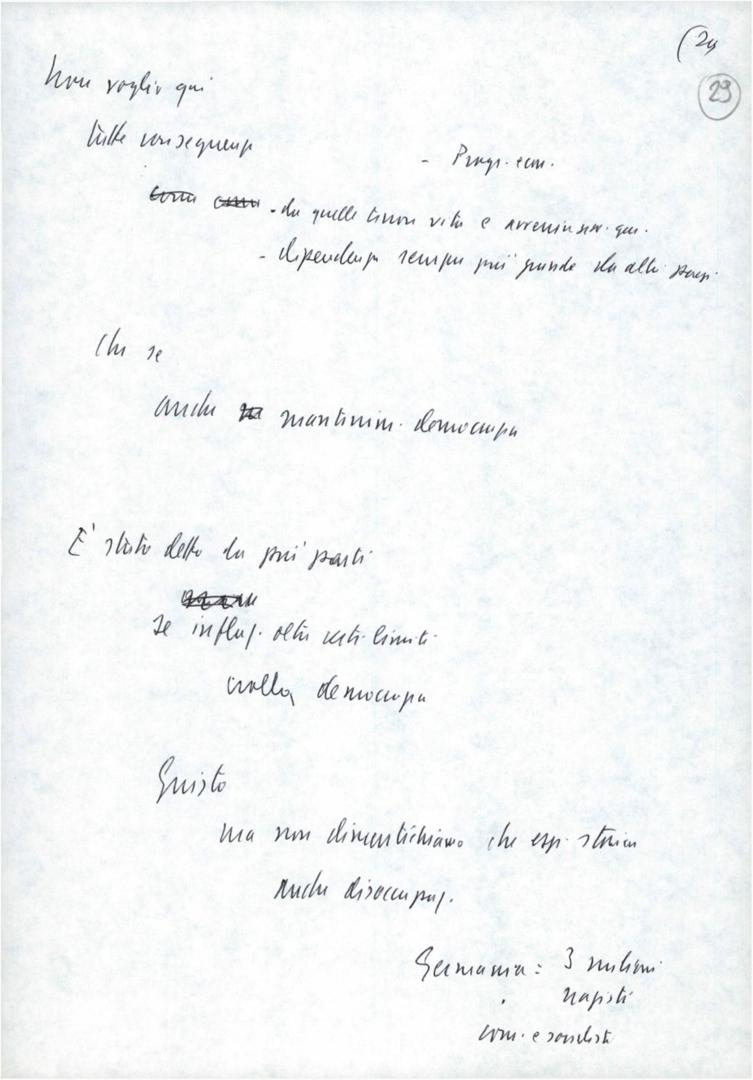 (29
29
Non voglio qui
tutte conseguenze
- Progr. econ.
- da quelle tenore vita e
- dipendenza sempre più grande da altri paesi
Che se
anche mantenim. democrazia
E' stato detto da più parti
se inflaz. oltre certi limiti
crolla democrazia
Giusto
ma non dimentichiamo che esp. storica
anche disoccupaz.
Germania: 3 milioni
nazisti
com. e socialisti